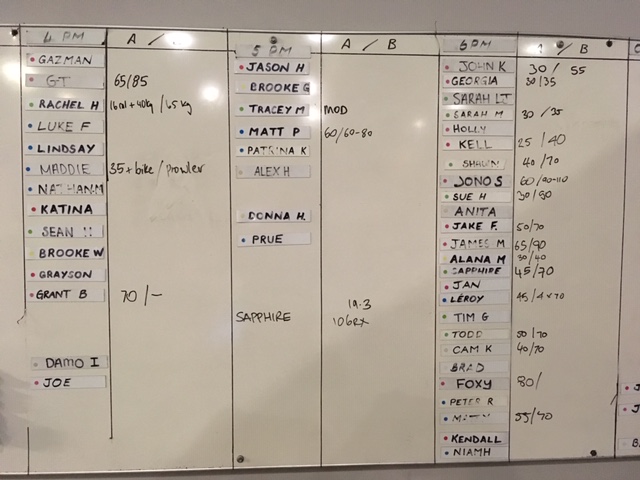 4 PM A /
GAZMAN
GT 65/85
RACHEL H 16ml + 40kg / 65 kg
LUKE F
LINDSAY
MADDIE 35 + bike / prowler
NATHAN M
KATINA
SEAN
BROOKE W
GRAYSON
GRANT B 70 / -
DAMO I
JOE
5 PM A / B
JASON H
BROOKE G
TRACEY M MOD
MATT P 60/60-80
PATRINA K
ALEX H
DONNA H.
PRUE
19.3
SAPPHIRE 106RX
6PM A / B
JOHN K 30 / 55
GEORGIA 30/35
SARAH LJ
SARAH M 30 / 35
HOLLY
KELL 25 / 40
SHAWN 40/70
JONO S 60/90-110
SUE H 30/50
ANITA
JAKE F. 50/70
JAMES M 65/90
ALANA M 30/40
SAPPHIRE 45/70
JAN
LEROY
TIM G
TODD 50/70
CAM K 40/70
BRAD
FOXY 80/
PETER R
55/70
KENDALL
NIAMH